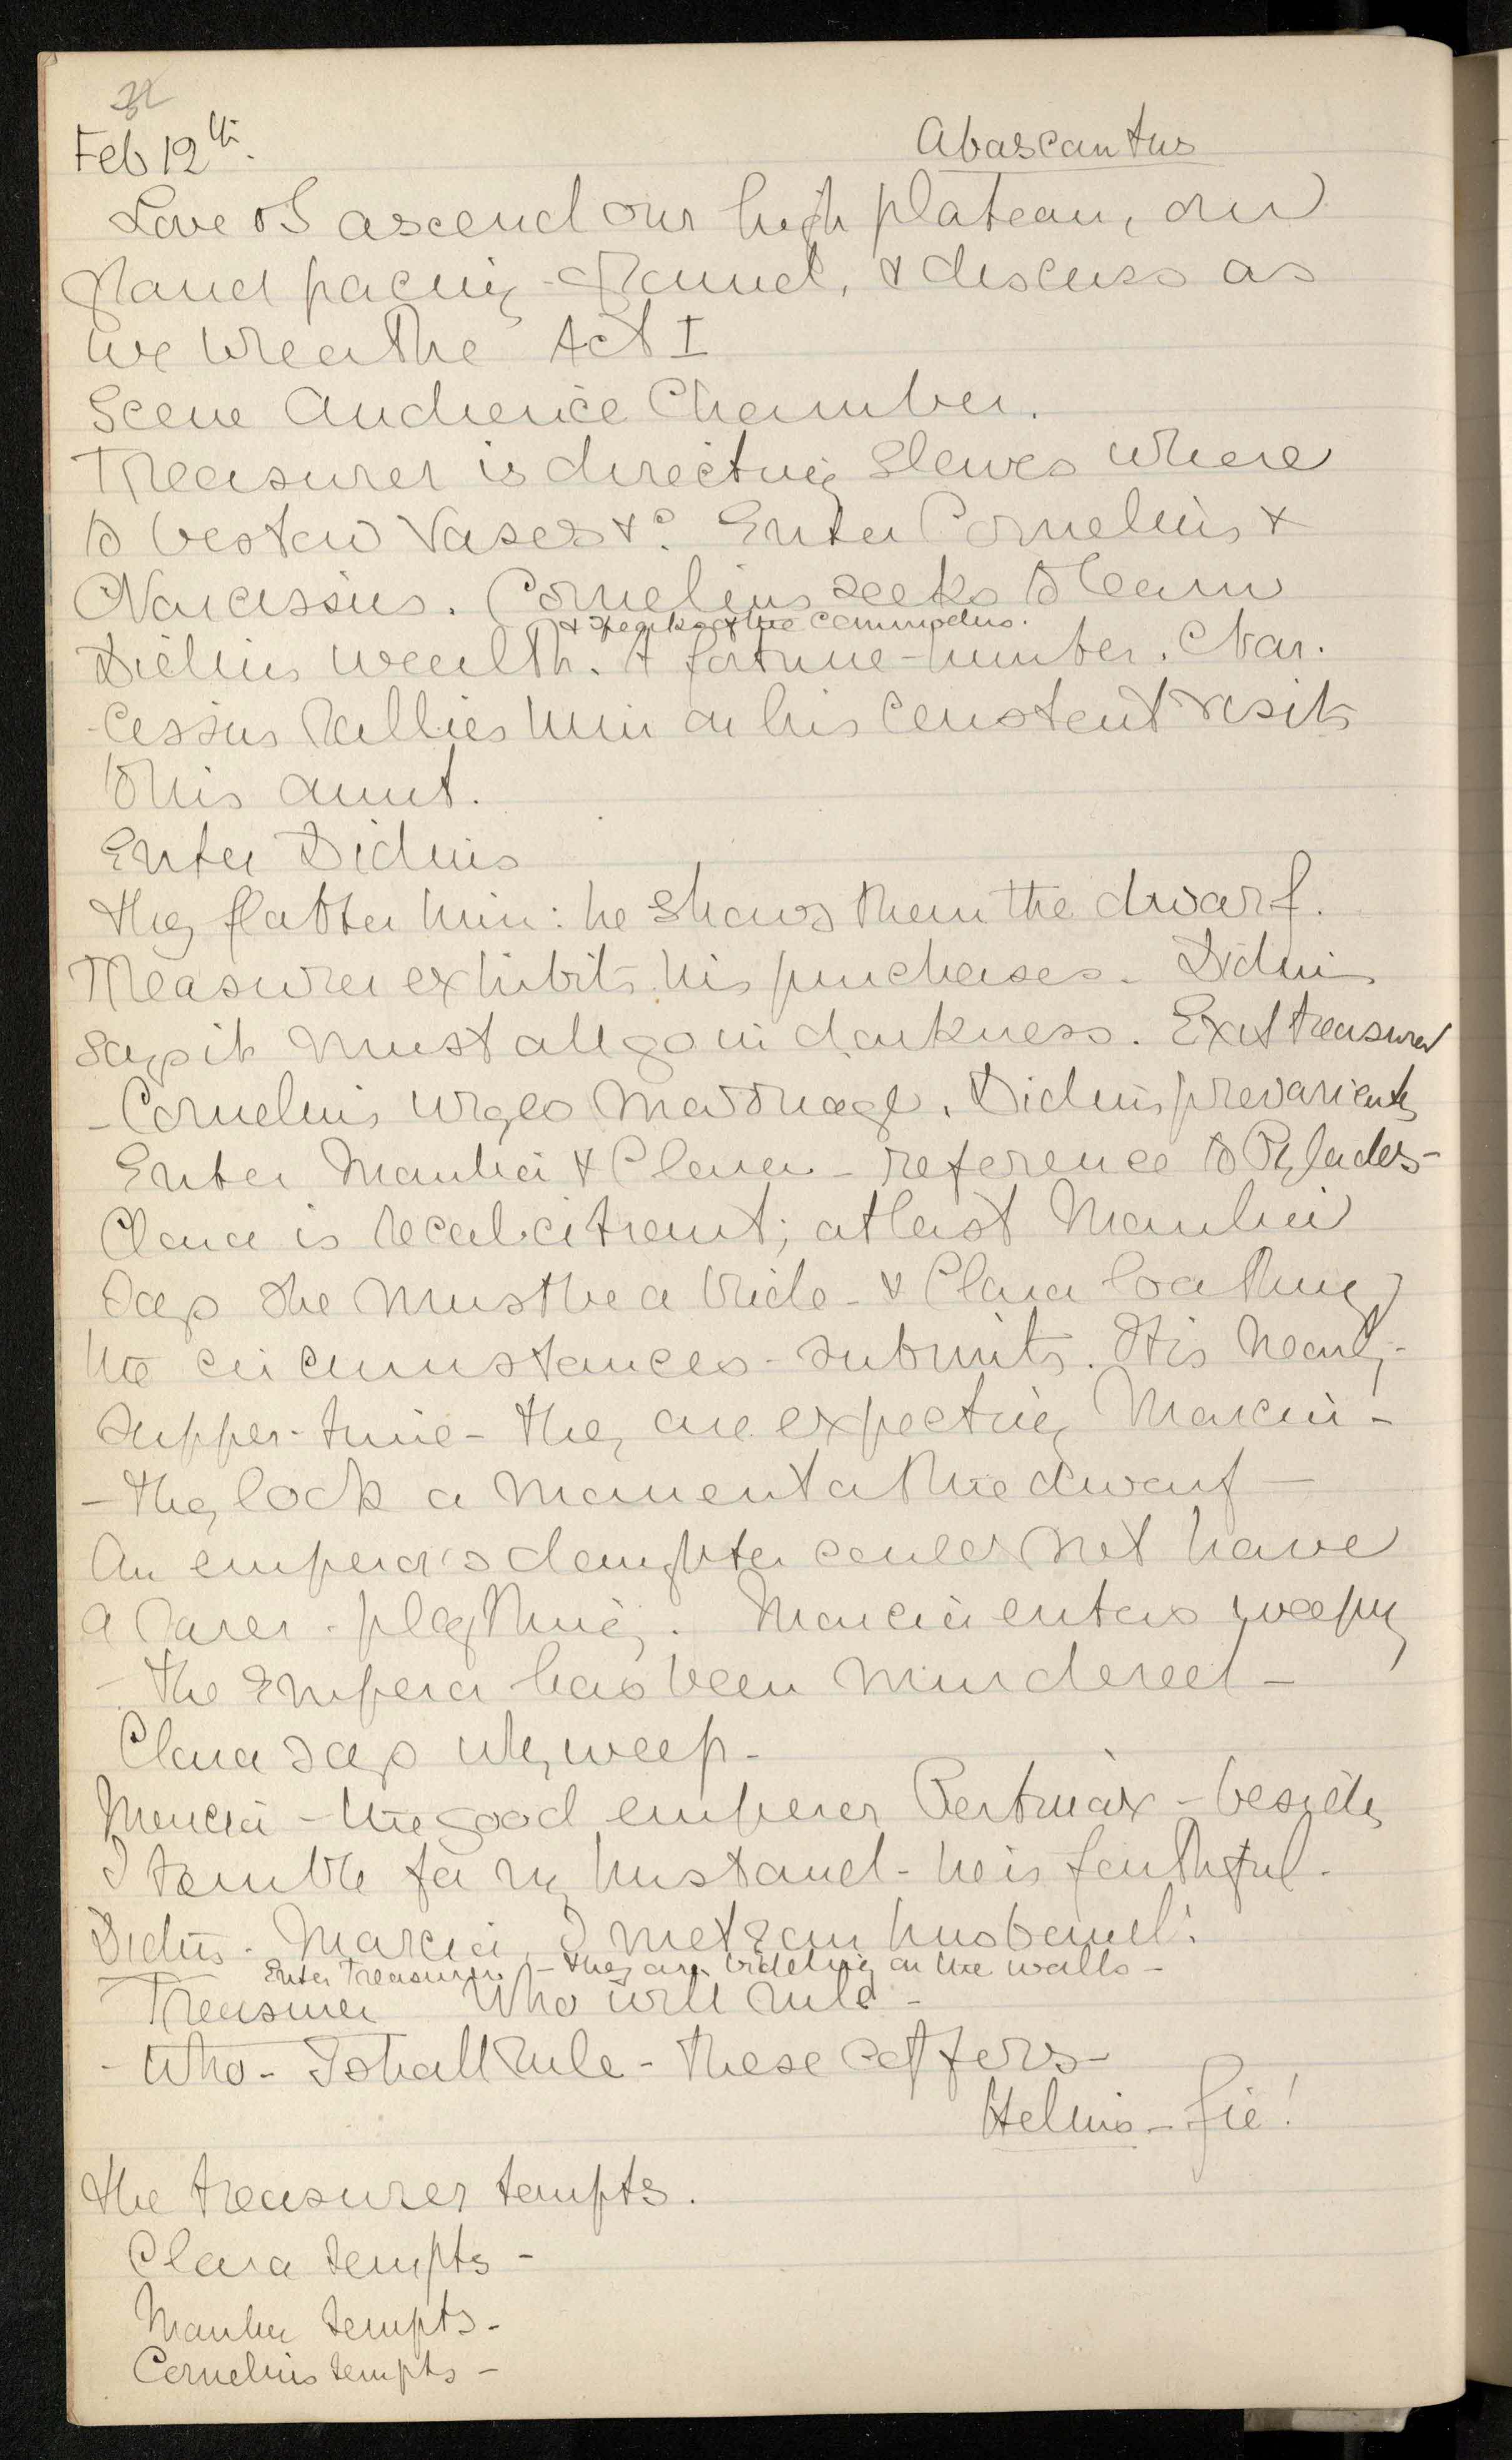 32
Feb 12th.
Abascantus
Love & I ascend our high plateau, our
grand pacing-ground, & discuss as
we breathe Act I
Scene Audience Chamber.
Treasurer is directing slaves where
to bestow vases &c. Enter Cornelius &
Narcissus. Cornelius seeks to learn
& speaks of the Commodus.
Didius wealth. A fortune-hunter. Nar-
cissus rallies him on his constant visits
to his aunt.
Enter Didius
they flatter him: he shows them the dwarf.
Treasurer exhibits his purchases. Didius
says it must all go in darkness. Exit treasurer
- Cornelius urges marriage. Didius prevaricates
Enter Manlia & Clara - reference to Pylades -
Clara is recalcitrant; at last Manlia
says she must be a bride - & Clara loathing
the circumstances - submits. It is nearly -
supper-time - they are expecting Marcia -
- they look a moment at the dwarf -
An emperor's daughter could not have
a rarer - plaything. Marcia enters weeping
- the Emperor has been murdered -
Clara says why weep -
Marcia - the good emperor Pertinax - besides
I tremble for my husband - he is faithful -
Didius - Marcia, I met yr husband!
Enter Treasurer - they are bidding on the walls -
Treasurer Who will rule -
- Who - I shall rule - these coffers -
Helius - fie!
the treasurer tempts.
Clara tempts -
Manlia tempts -
Cornelius tempts -